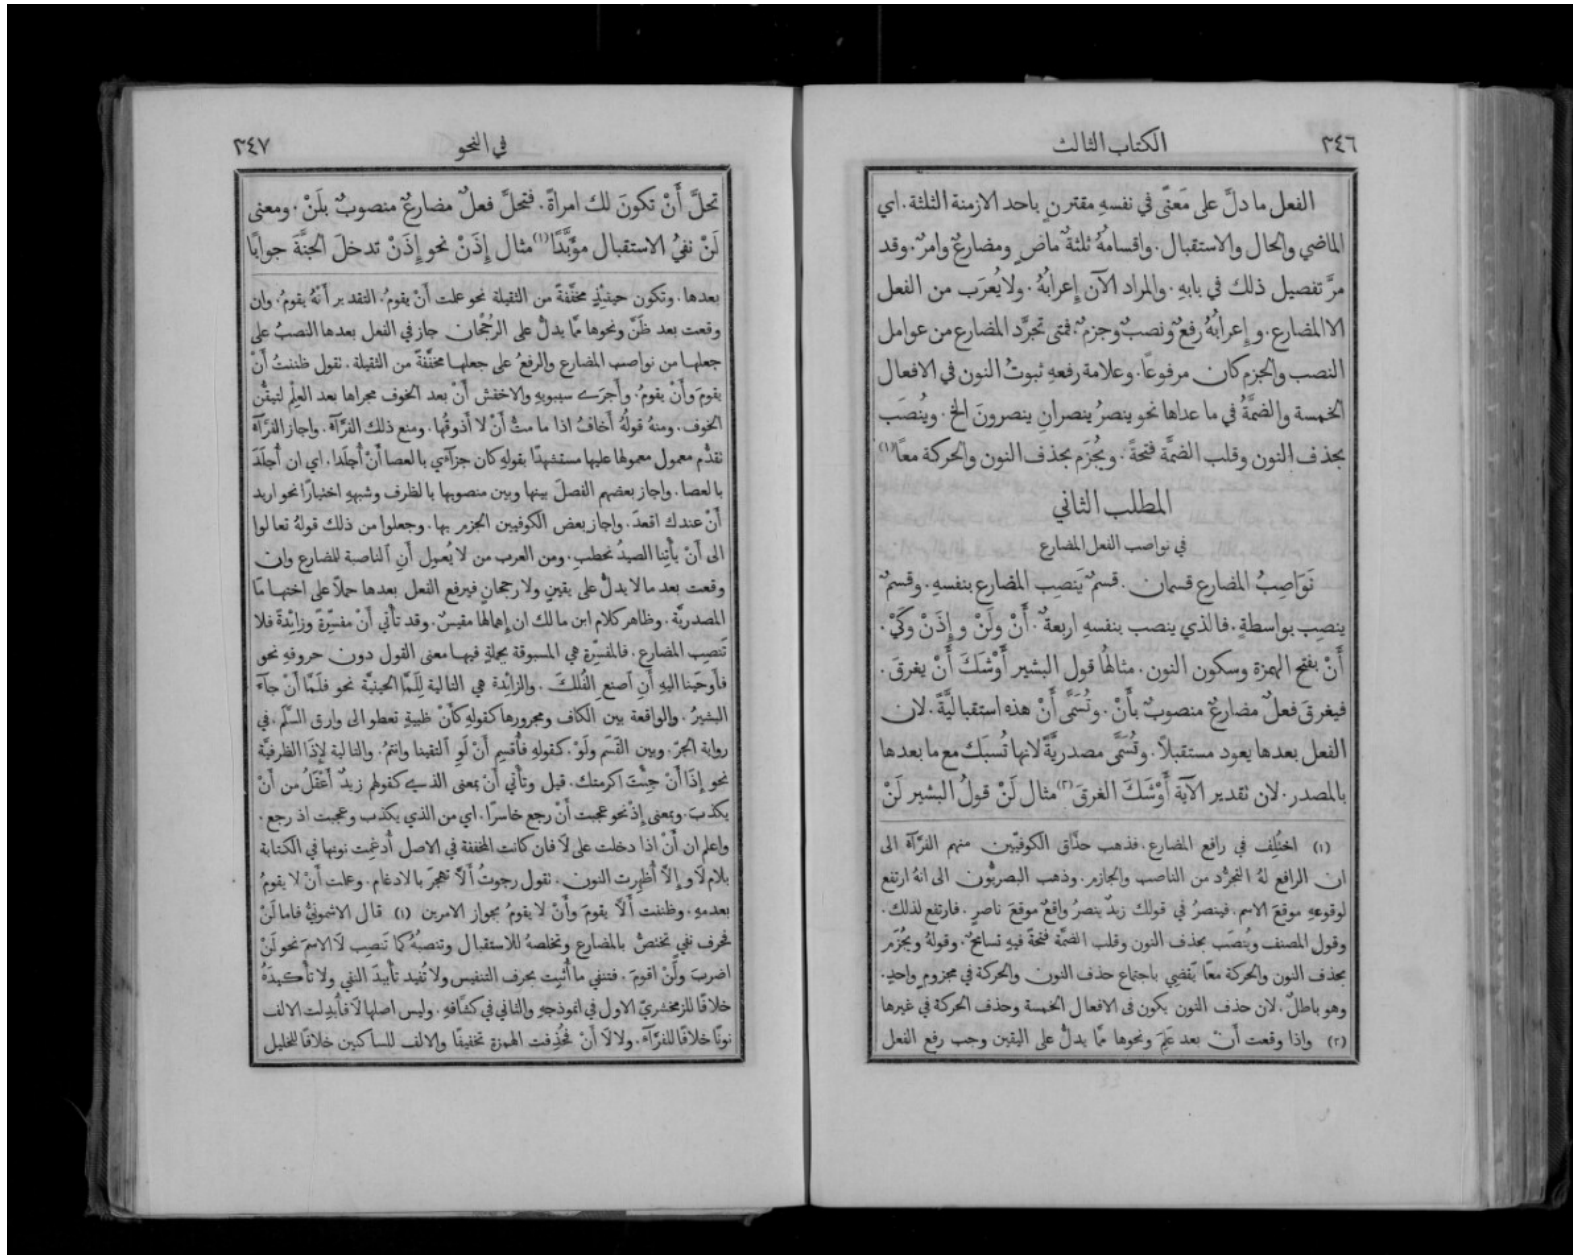 ٣٤٦
الكتاب الثالث
الفعل ما دلَّ على مَعنًى في نفسهِ مقترنٍ باحد الازمنة الثلثة. اي
الماضي والحال والاستقبال. واقسامهُ ثلثةٌ ماضٍ ومضارعٌ وامرٌ. وقد
مرَّ تفصيل ذلك في بابهِ. والمراد الآن إِعرابُهُ. ولا يُعرَب من الفعل
الا المضارع. وإِعرابُهُ رفعٌ ونصبٌ وجزمٌ. فمتى تجرَّد المضارع من عوامل
النصب والجزم كان مرفوعًا. وعلامة رفعهِ ثبوتُ النون في الافعال
الخمسة والضمَّةُ في ما عداها نحو ينصرُ ينصرانِ ينصرونَ الخ. ويُنصَب
بحذف النون وقلب الضمَّة فتحةً. ويُجزَم بحذف النون والحركة معًا (١)
المطلب الثاني
في نواصب الفعل المضارع
نَوَاصِبُ المضارع قسمان. قسمٌ يَنصِب المضارع بنفسهِ. وقسمٌ
ينصِب بواسطةٍ. فالذي ينصب بنفسهِ اربعةٌ. أَنْ ولَنْ وإِذَنْ وكَيْ.
أَنْ بفتح الهمزة وسكون النون. مثالهُا قول البشير أَوْشَكَ أَنْ يغرقَ.
فيغرقَ فعلٌ مضارعٌ منصوبٌ بأَنْ. وتُسَمَّى أَنْ هذه استقباليَّةً. لان
الفعل بعدها يعود مستقبلاً. وتُسَمَّى مصدريَّةً لانها تُسبَك مع ما بعدها
بالمصدر. لان تقدير الآية أَوْشَكَ الغرقَ (٢) مثال لَنْ قولُ البشير لَنْ
(١) اختُلِف في رافع المضارع. فذهب حذَّاق الكوفيّين منهم الفرَّآءُ الى
ان الرافع لهُ التجرُّد من الناصب والجازم. وذهب البصريُّون الى انهُ ارتفع
لوقوعهِ موقعَ الاسم. فينصرُ في قولك زيدٌ ينصرُ واقعٌ موقعَ ناصرٍ. فارتفع لذلك.
وقول المصنف ويُنصَب بحذف النون وقلب الضمَّة فتحةً فيهِ تسامحٌ. وقولهُ ويُجزَم
بحذف النون والحركة معًا يَقضِي باجتماع حذف النون والحركة في مجزومٍ واحدٍ.
وهو باطلٌ. لان حذف النون يكون في الافعال الخمسة وحذف الحركة في غيرها
(٢) واذا وقعت أَنْ بعد عَلِمَ ونحوها مّا يدلُّ على اليقين وجب رفع الفعل
في النحو
٣٤٧
تحلَّ أَنْ تكونَ لك امرأةً. فتحلَّ فعلٌ مضارعٌ منصوبٌ بلَنْ. ومعنى
لَنْ نفيُ الاستقبال مؤَبَّدًا (١) مثال إِذَنْ نحو إِذَنْ تدخلَ الجنَّةَ جوابًا
بعدها. وتكون حينئِذٍ مخفَّفةً من الثقيلة نحو علمت أَنْ يقومُ. التقدير أَنَّهُ يقومُ. وان
وقعت بعد ظَنَّ ونحوها مّا يدلُّ على الرُجْحان جاز في الفعل بعدها النصبُ على
جعلها من نواصب المضارع والرفعُ على جعلها مخفَّفةً من الثقيلة. تقول ظننتُ أَنْ
يقومَ وأَنْ يقومُ. وأَجرَى سيبويهِ والاخفش أَنْ بعد الخوف مجراها بعد العِلْم لتيقُّن
الخوف. ومنهُ قولهُ أَخافُ اذا ما متُّ أَنْ لا أَذوقُها. ومنع ذلك الفرَّآءُ. واجاز الفرَّآءُ
تقدُّم معمول معمولها عليها مستشهدًا بقولهِ كان جزآءي بالعصا أَنْ أُجلَدا. اي ان أُجلَدَ
بالعصا. واجاز بعضهم الفصلَ بينها وبين منصوبها بالظرف وشبههِ اختيارًا نحو اريد
أَنْ عندك اقعدَ. واجاز بعض الكوفيين الجزم بها. وجعلوا من ذلك قولهُ تعالوا
الى أَنْ يأْتِنا الصيدُ نحطبِ. ومن العرب من لا يُعمِل أَنِ الناصبة للمضارع وان
وقعت بعد ما لا يدلُّ على يقينٍ ولا رجحانٍ فيرفع الفعل بعدها حملاً على اختها ما
المصدريَّة. وظاهر كلام ابن مالك ان إِهمالها مقيسٌ. وقد تأْتي أَنْ مفسِّرةً وزائِدةً فلا
تَنصِب المضارع. فالمفسِّرة هي المسبوقة بجملةٍ فيها معنى القول دون حروفهِ نحو
فأَوحَينا اليهِ أَنِ اصنعِ الفُلكَ. والزائِدة هي التالية لِلَمَّا الحينيَّة نحو فلَمَّا أَنْ جآءَ
البشيرُ. والواقعة بين الكاف ومجرورها كقولهِ كأَنْ ظبيةٍ تعطو الى وارق السَلَم. في
رواية الجرّ. وبين القَسَم ولَوْ. كقولهِ فأُقسِم أَنْ لَوِ التقينا وانتمُ. والتالية لإِذَا الظرفيَّة
نحو إِذَا أَنْ جِئْتَ اكرمتك. قيل وتأْتي أَنْ بمعنى الذي كقولهم زيدٌ أَعْقَلُ من أَنْ
يكذبَ. وبمعنى إِذْ نحو عجبت أَنْ رجع خاسرًا. اي من الذي يكذب وعجبت اذ رجع.
واعلم ان أَنْ اذا دخلت على لاَ فان كانت المخففة في الاصل أُدغِمت نونها في الكتابة
بلام لاَ وإِلاَّ أُظهِرت النون. تقول رجوتُ أَلاَّ تهجرَ بالادغام. وعلمت أَنْ لا يقومُ
بعدمهِ. وظننت أَلاَّ يقومَ وأَنْ لا يقومُ بجواز الامرين (١) قال الاشمونيُّ فاما لَنْ
فحرف نفيٍ تختصُّ بالمضارع وتخلصهُ للاستقبال وتنصبُهُ كما تَنصِب لاَ الاسمَ نحو لَنْ
اضربَ ولَنْ اقومَ. فتنفي ما أُثبِت بحرف التنفيس ولا تُفيد تأْبيدَ النفي ولا تأْكيدَهُ
خلافًا للزمخشريّ الاول في انموذجهِ والثاني في كشَّافهِ. وليس اصلها لاَ فأُبدِلت الالف
نونًا خلافًا للفرَّآءِ. ولا لاَ أَنْ فحُذِفت الهمزة تخفيفًا والالف للساكنين خلافًا للخليل